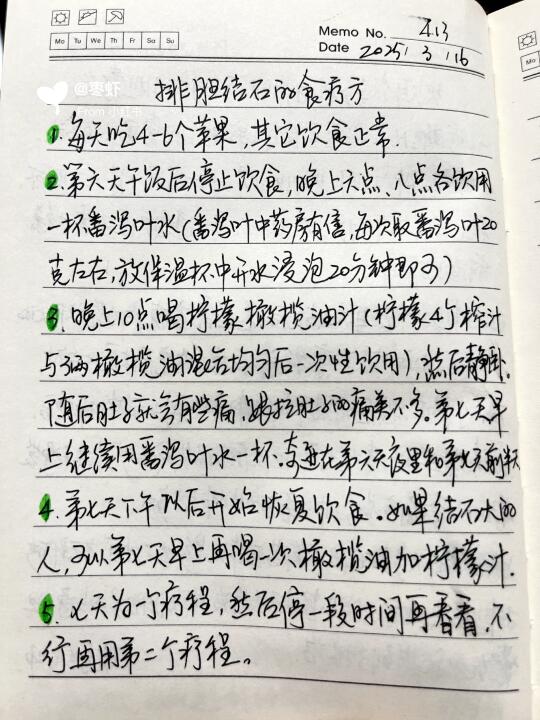 Memo No. 4.13
Mo Tu We Th Fr Sa Su
Date 2025/3/16
排胆结石的食疗方
1.每天吃4-6个苹果,其它饮食正常.
2.第六天午饭后停止饮食,晚上六点、八点各饮用
一杯番泻叶水(番泻叶中药房有售,每次取番泻叶20
克左右,放保温杯中开水浸泡20分钟即可)
3.晚上10点喝柠檬橄榄油汁(柠檬4个榨汁
与3两橄榄油混合均匀后一次性饮用),然后静卧.
随后肚子就会有些痛,跟拉肚子的痛差不多。第七天早
上继续用番泻叶水一杯.奇迹在第六天夜里和第七天前半天
4.第七天下午以后开始恢复饮食。如果结石大的
人,可以第七天早上再喝一次橄榄油加柠檬汁.
5.七天为一个疗程,然后停一段时间再看看,不
行再用第二个疗程。